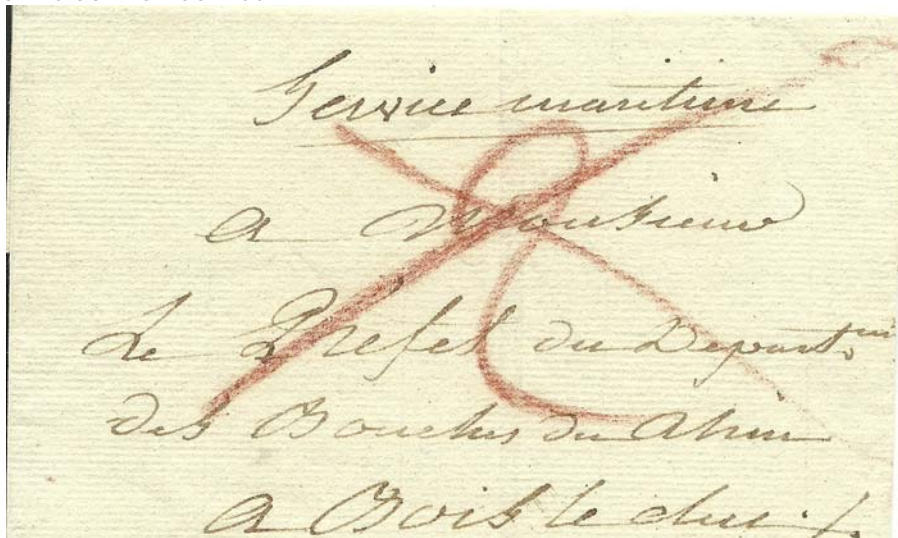 Service maritime
a Monsieur
Le Préfet du Depart.m
des Bouches du Rhin
a Bois le duc ./.